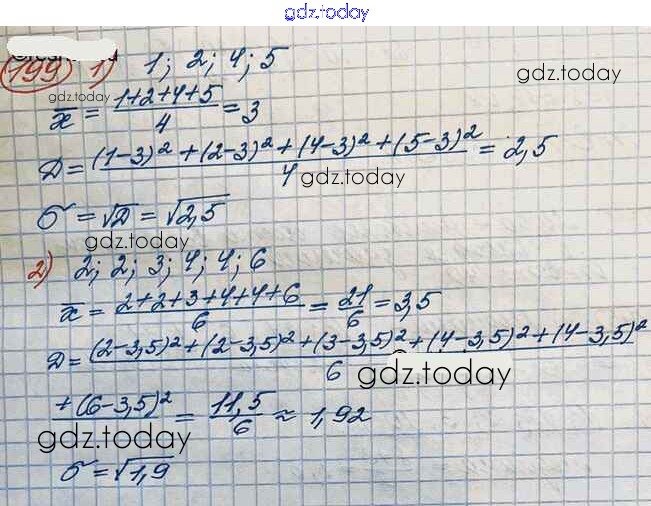 gdz.today
199 1) 1; 2; 4; 5
gdz.today
gdz.today
x̅ = (1+2+4+5)/4 = 3
D = ((1-3)² + (2-3)² + (4-3)² + (5-3)²)/4 = 2,5
gdz.today
σ = √D = √2,5
gdz.today
2) 2; 2; 3; 4; 4; 6
x̅ = (2+2+3+4+4+6)/6 = 21/6 = 3,5
D = (2-3,5)² + (2-3,5)² + (3-3,5)² + (4-3,5)² + (4-3,5)²
6
gdz.today
+ (6-3,5)² = 11,5/6 ≈ 1,92
gdz.today
σ = √1,9